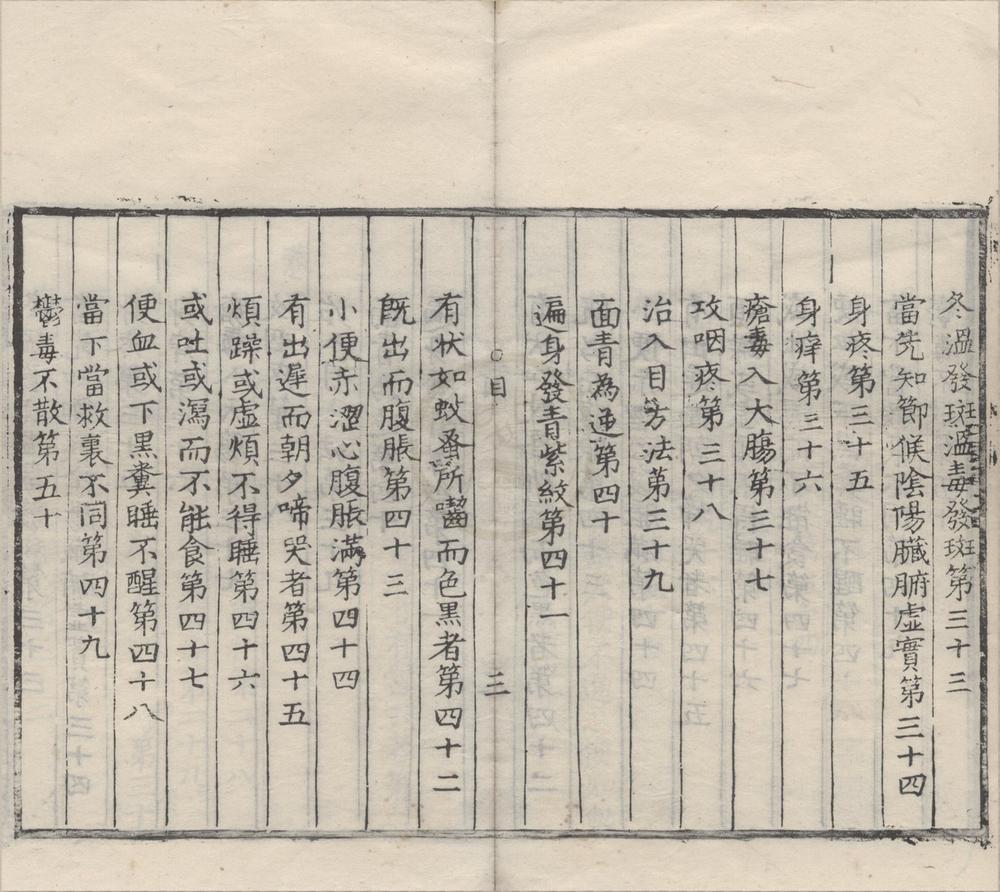 冬溫發斑溫毒發斑第三十三
當先知節候陰陽臟腑虛實第三十四
身疼第三十五
身痒第三十六
瘡毒入大腸第三十七
攻咽疼第三十八
治入目方法第三十九
面青為逆第四十
遍身發青紫紋第四十一
○目 三
有状如蚊蚤所嚙而色黑者第四十二
既出而腹脹第四十三
小便赤澀心腹脹滿第四十四
有出遲而朝夕啼哭者第四十五
煩躁或虛煩不得睡第四十六
或吐或瀉而不能食第四十七
便血或下黑糞睡不醒第四十八
當下當救裏不同第四十九
鬱毒不散第五十